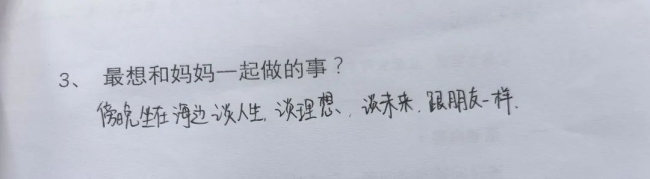 3、最想和妈妈一起做的事？
傍晚坐在海边谈人生，谈理想、谈未来.跟朋友一样.